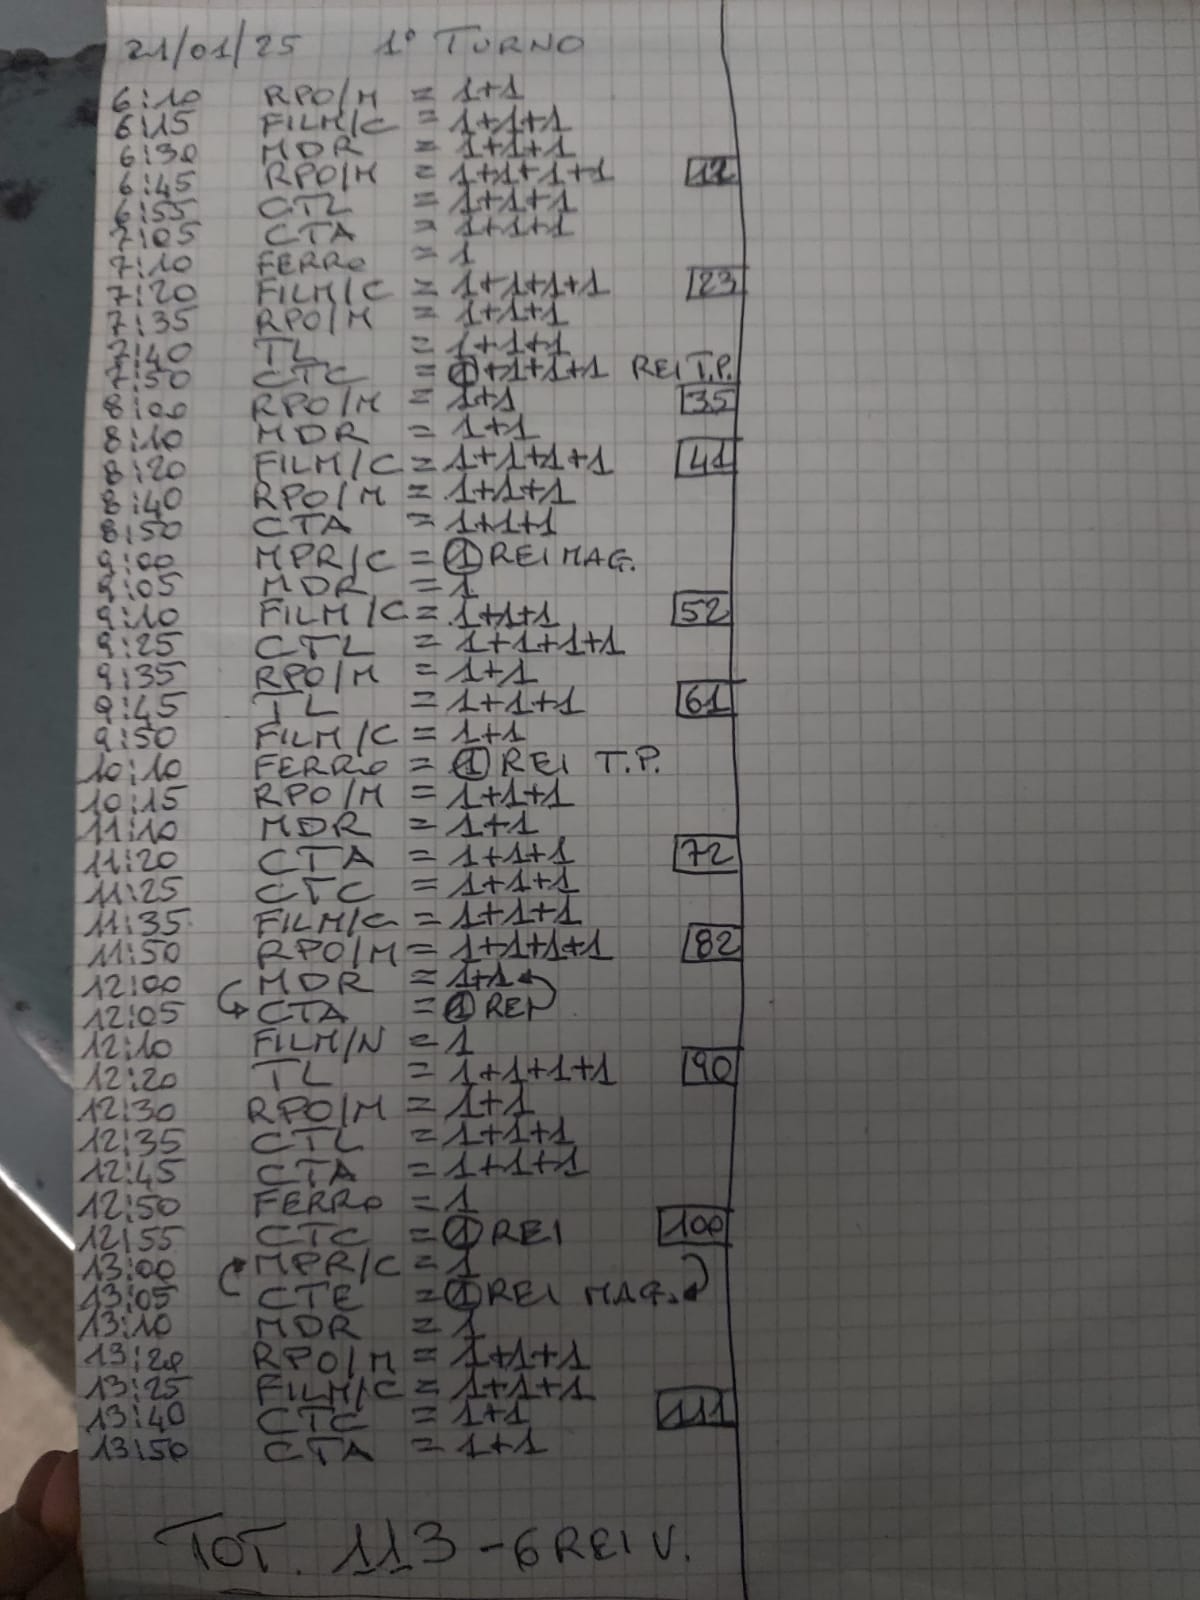 21/01/25 1° TURNO
6:10 RPO/M = 1+1
6:15 FILM/C = 1+1+1
6:30 MDR = 1+1+1
6:45 RPO/M = 1+1+1+1 12
6:55 CTL = 1+1+1
7:05 CTA = 1+1+1
7:10 FERRO = 1
7:20 FILM/C = 1+1+1+1 23
7:35 RPO/M = 1+1+1
7:40 TL = 1+1+1
7:50 CTC = 1+1+1+1 REI T.P.
8:00 RPO/M = 1+1 35
8:10 MDR = 1+1
8:20 FILM/C = 1+1+1+1 41
8:40 RPO/M = 1+1+1
8:50 CTA = 1+1+1
9:00 MPR/C = 1 REI MAG.
9:05 MDR = 1
9:10 FILM/C = 1+1+1 52
9:25 CTL = 1+1+1+1
9:35 RPO/M = 1+1
9:45 TL = 1+1+1 61
9:50 FILM/C = 1+1
10:10 FERRO = 1 REI T.P.
10:15 RPO/M = 1+1+1
11:10 MDR = 1+1
11:20 CTA = 1+1+1 72
11:25 CTC = 1+1+1
11:35 FILM/C = 1+1+1
11:50 RPO/M = 1+1+1+1 82
12:00 MDR = 1+1
12:05 CTA = 1 REI
12:10 FILM/N = 1
12:20 TL = 1+1+1+1 90
12:30 RPO/M = 1+1
12:35 CTL = 1+1+1
12:45 CTA = 1+1+1
12:50 FERRO = 1
12:55 CTC = 1 REI 100
13:00 MPR/C = 1
13:05 CTE = 1 REI MAG.
13:10 MDR = 1
13:20 RPO/M = 1+1+1
13:25 FILM/C = 1+1+1
13:40 CTC = 1+1 111
13:50 CTA = 1+1
TOT. 113 - 6 REI V.